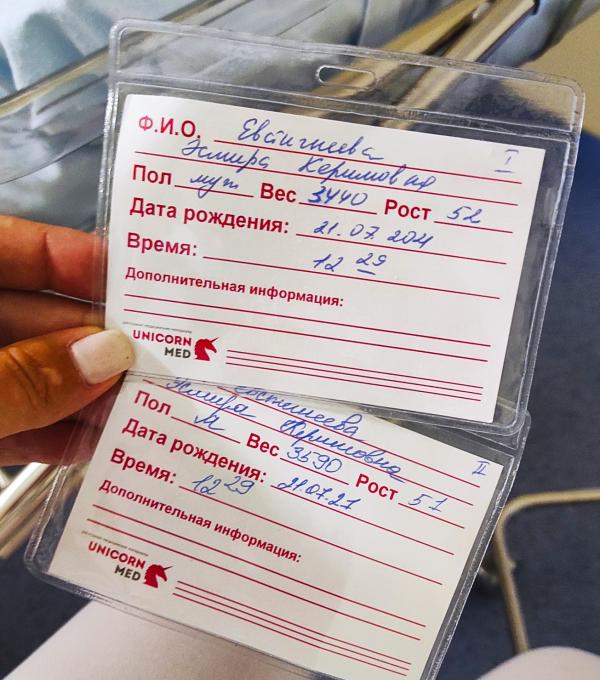 Ф.И.О. Евстигнеева I
Эльмира Керимовна
Пол муж Вес 3440 Рост 52
Дата рождения: 21.07.2021
Время: 12 29
Дополнительная информация:
UNICORN
MED
Евстигнеева
Эльмира Керимовна II
Пол М Вес 3590 Рост 51
Дата рождения: 21.07.21
Время: 12 29
Дополнительная информация:
UNICORN
MED